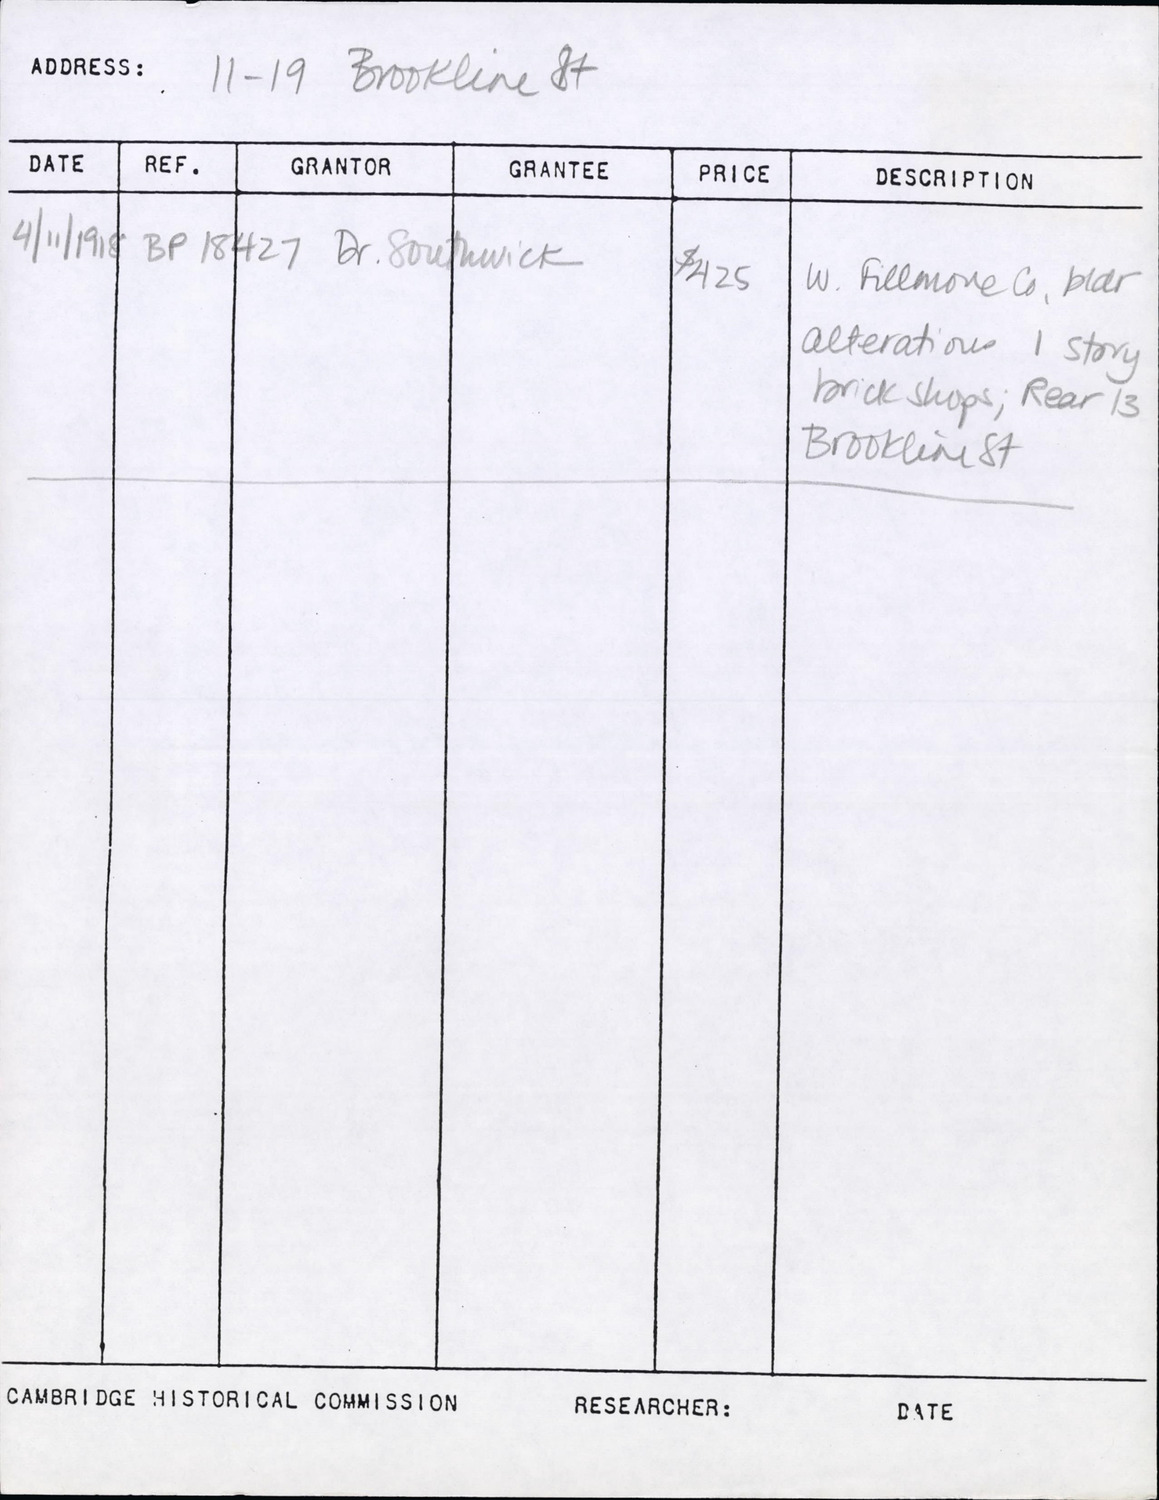 ADDRESS: 11-19 Brookline St
DATE REF. GRANTOR GRANTEE PRICE DESCRIPTION
4/11/1918 BP 18427 Dr. Southwick $425 W. Fillmore Co, bldr
alterations 1 story
brick shops; Rear 13
Brookline St
CAMBRIDGE HISTORICAL COMMISSION RESEARCHER: DATE